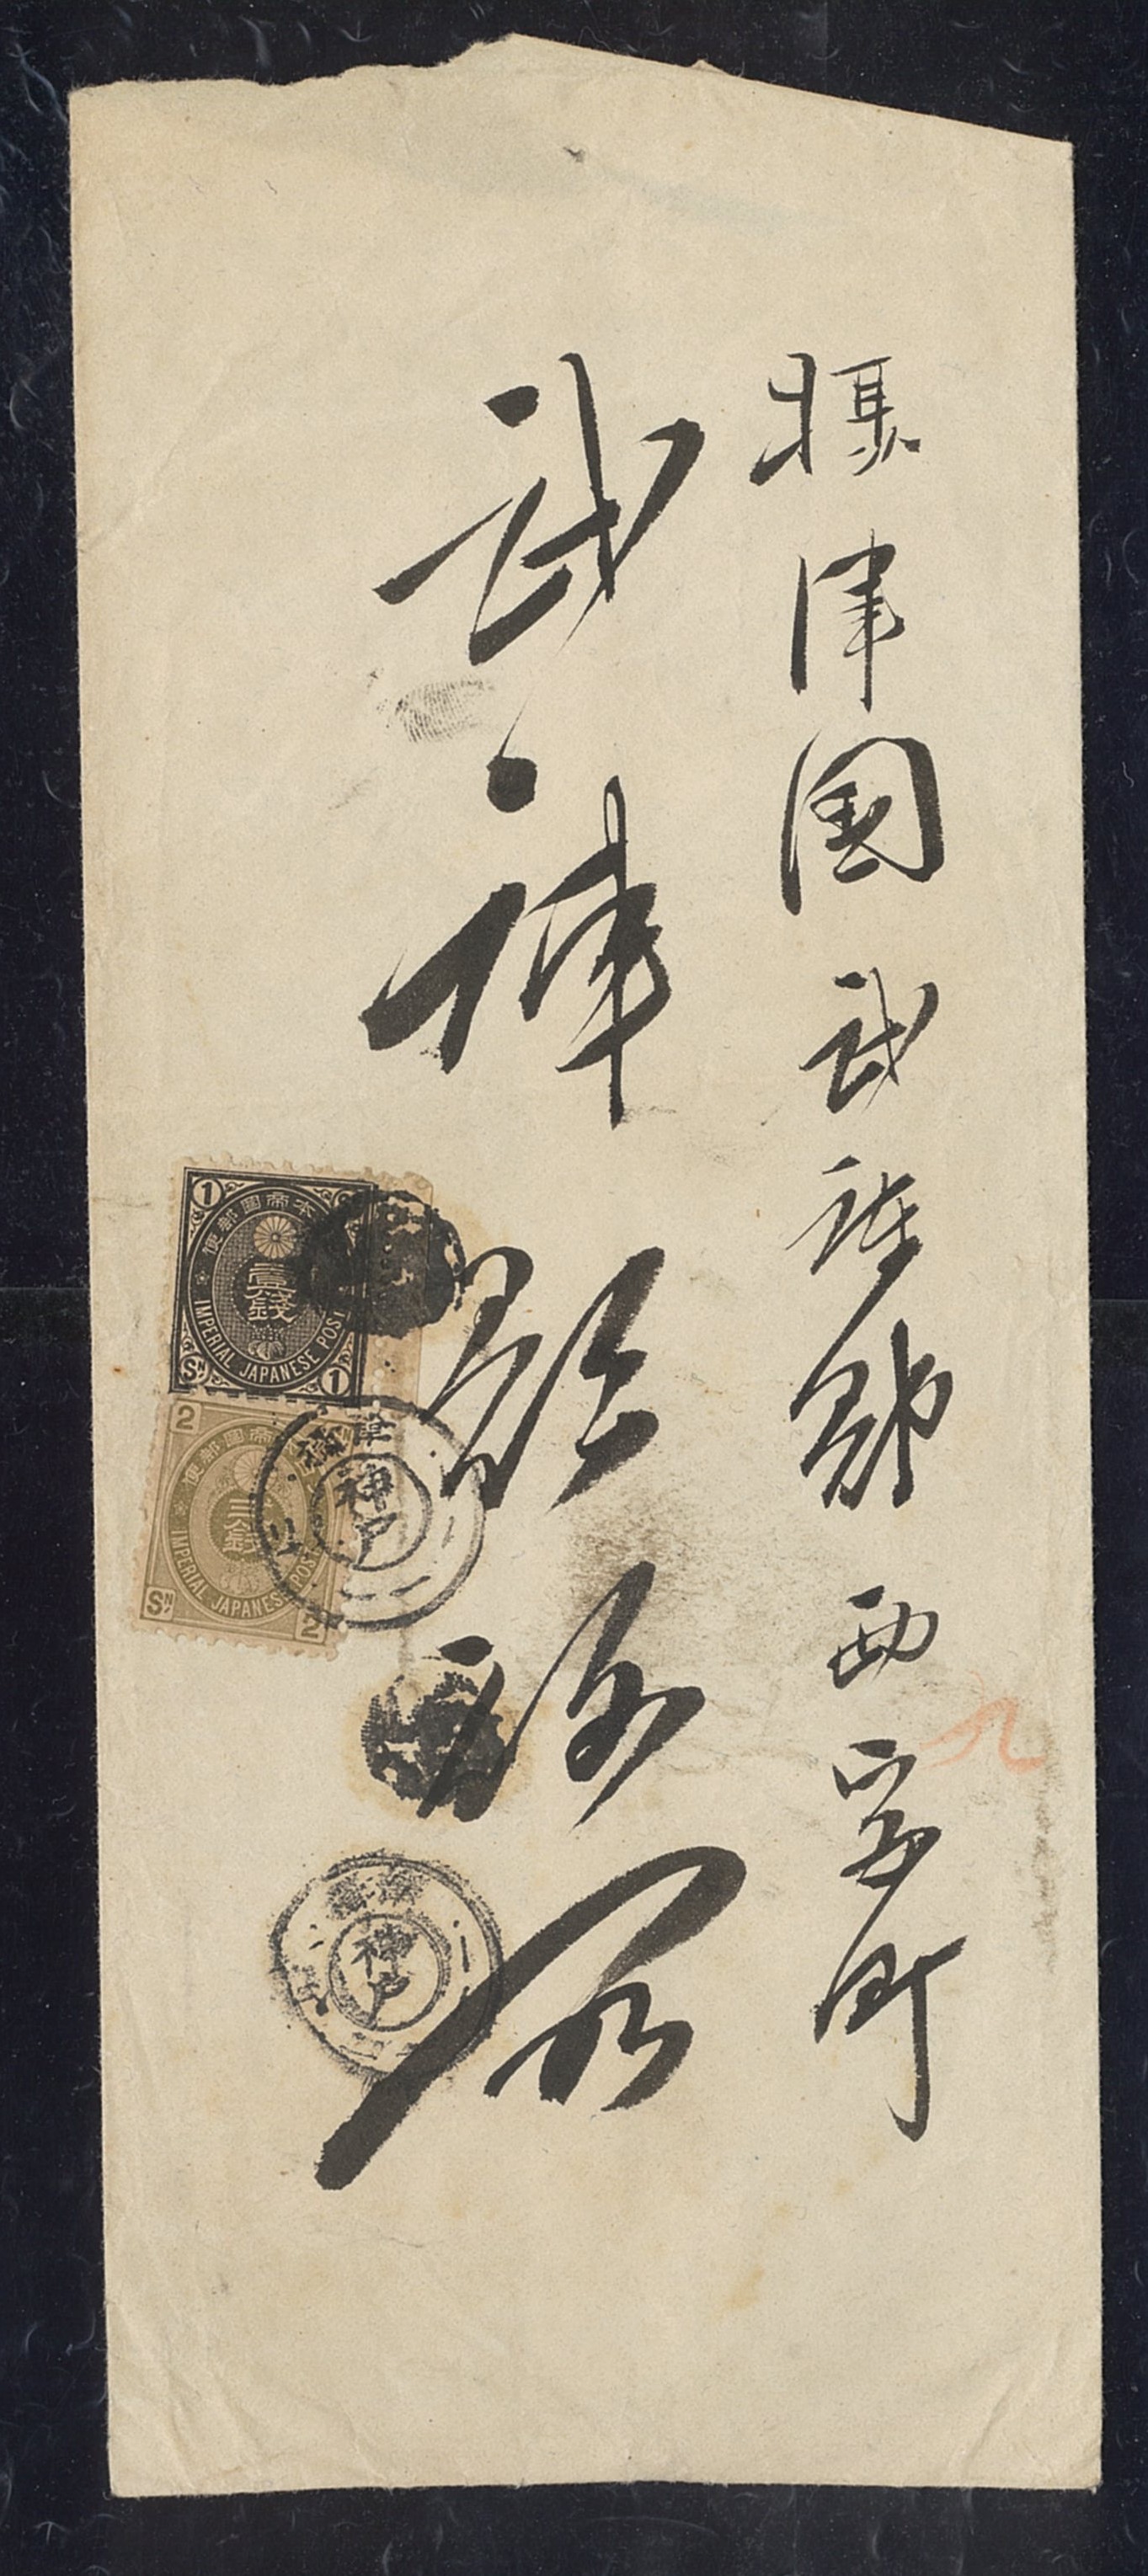 攝津國武庫郡西宮町
武庫郡役所
本帝國郵便
壹錢
IMPERIAL JAPANESE POST
1
SN
1
帝國郵便
二錢
IMPERIAL JAPANESE POST
2
SN
2
神戸
神戸